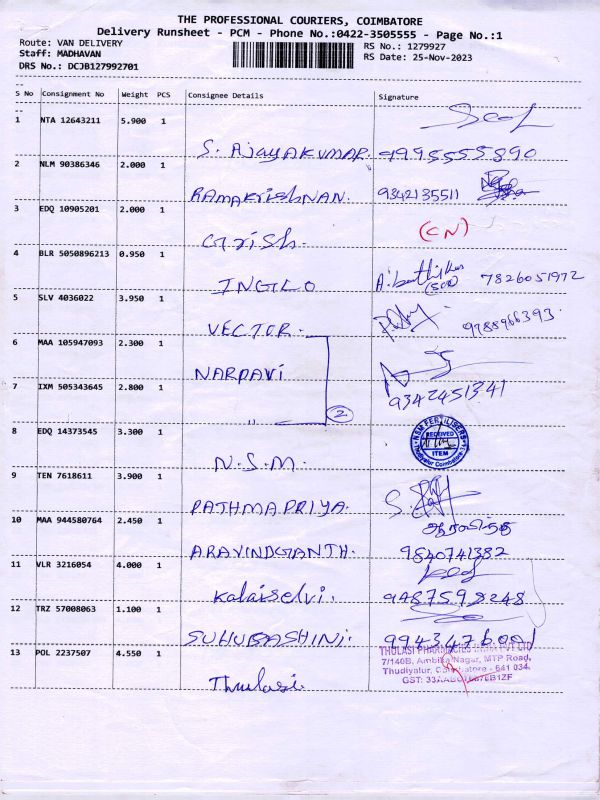 THE PROFESSIONAL COURIERS, COIMBATORE
Delivery Runsheet - PCM - Phone No.:0422-3505555 - Page No.:1
Route: VAN DELIVERY
RS No.: 1279927
Staff: MADHAVAN
RS Date: 25-Nov-2023
DRS No.: DCJB127992701
S No Consignment No Weight PCS Consignee Details Signature
1 NTA 12643211 5.900 1
S. AJAYAKUMAR. 9995555890
2 NLM 90386346 2.000 1
RAMAKRISHNAN. 9342135511
3 EDQ 10905201 2.000 1
Girish. (CN)
4 BLR 5050896213 0.950 1
INGLO 7826051972
5 SLV 4036022 3.950 1
VECTOR. 9788966393.
6 MAA 105947093 2.300 1
NARPAVI
7 IXM 505343645 2.800 1
9342451341
" 2
8 EDQ 14373545 3.300 1
NSM FERTILISERS
RECEIVED
ITEM
Thudiyalur Coimbatore
N.S.M.
9 TEN 7618611 3.900 1
PATHMAPRIYA.
10 MAA 944580764 2.450 1
ARAVINDGANTH. 9840741382
11 VLR 3216054 4.000 1
Kalaiselvi. 9487598248
12 TRZ 57008063 1.100 1
SUHUBASHINI.
13 POL 2237507 4.550 1
Thulasi.
THULASI PHARMACIES
7/140B, Ambika Nagar, MTP Road,
Thudiyalur, Coimbatore - 641 034.
GST: